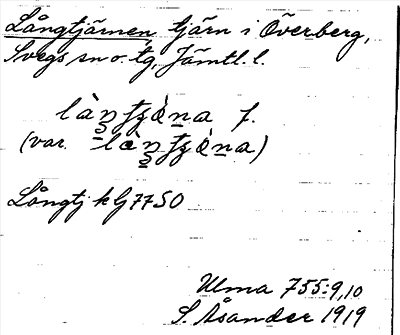 Långtjärnen, tjärn i Överberg,
Svegs sn o. tg, Jämtl. l.
f.
(var.
Långtj k G 7750
Ulma 755:9,10
S. Åsander 1919